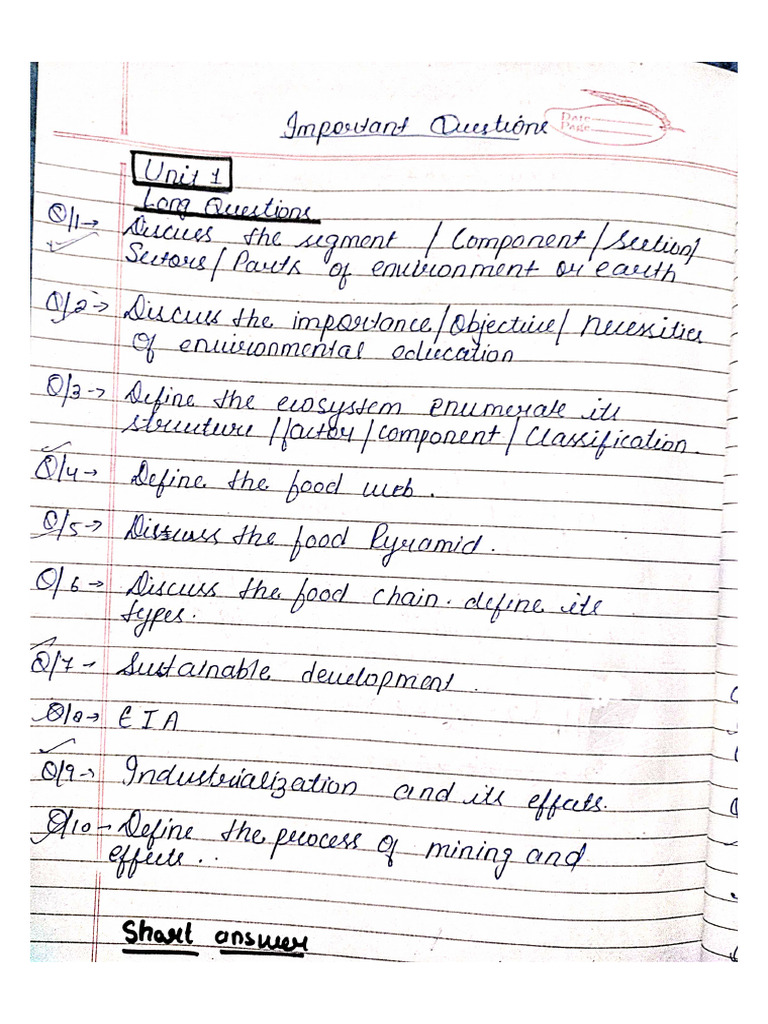 Important Questions
Date
Page
Unit 1
Long Questions
Q/1→ Discuss the segment / Component / Section/
Sectors / Parts of environment or earth
Q/2→ Discuss the importance / Objective / Necessities
Of environmental education
Q/3→ Define the ecosystem enumerate its
structure / factor / component / Classification.
Q/4→ Define the food web.
Q/5→ Discuss the food Pyramid.
Q/6→ Discuss the food chain. define its
types.
Q/7→ Sustainable development.
Q/8→ EIA
Q/9→ Industrialization and its effects.
Q/10→ Define the process of mining and
effects..
Short answer